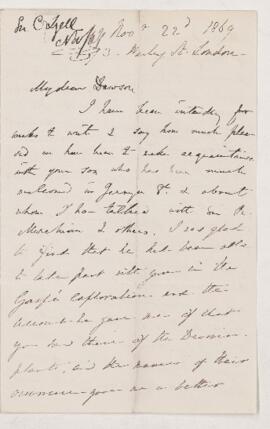 Sir C. Lyell
Novr 22d 1869
73 Harley St. London
My dear Dawson
I have been intending for
weeks to write & say how much plea-
sed we have been to make acquaintance
with your son who has been much
in & about
whom I have talked with Sir R.
Murchison & others. I was glad
to find that he had been able
to take part with you in the
Gaspé exploration and the
account he gave me of that
you & him of the Devonian
plants, and the manner of their
occurrence gave me a better